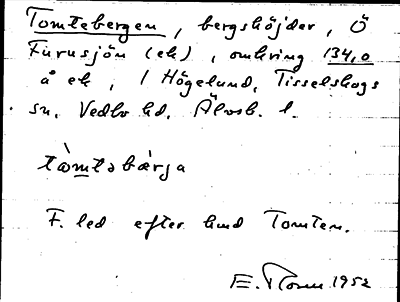 Tomtebergen, bergshöjder, Ö
Furusjön (ek), omkring 134,0
å ek, i Högelund, Tisselskogs
sn. Vedbo hd. Älvsb. l.
tòmtəbærja
F. led efter lund Tomten.
1952